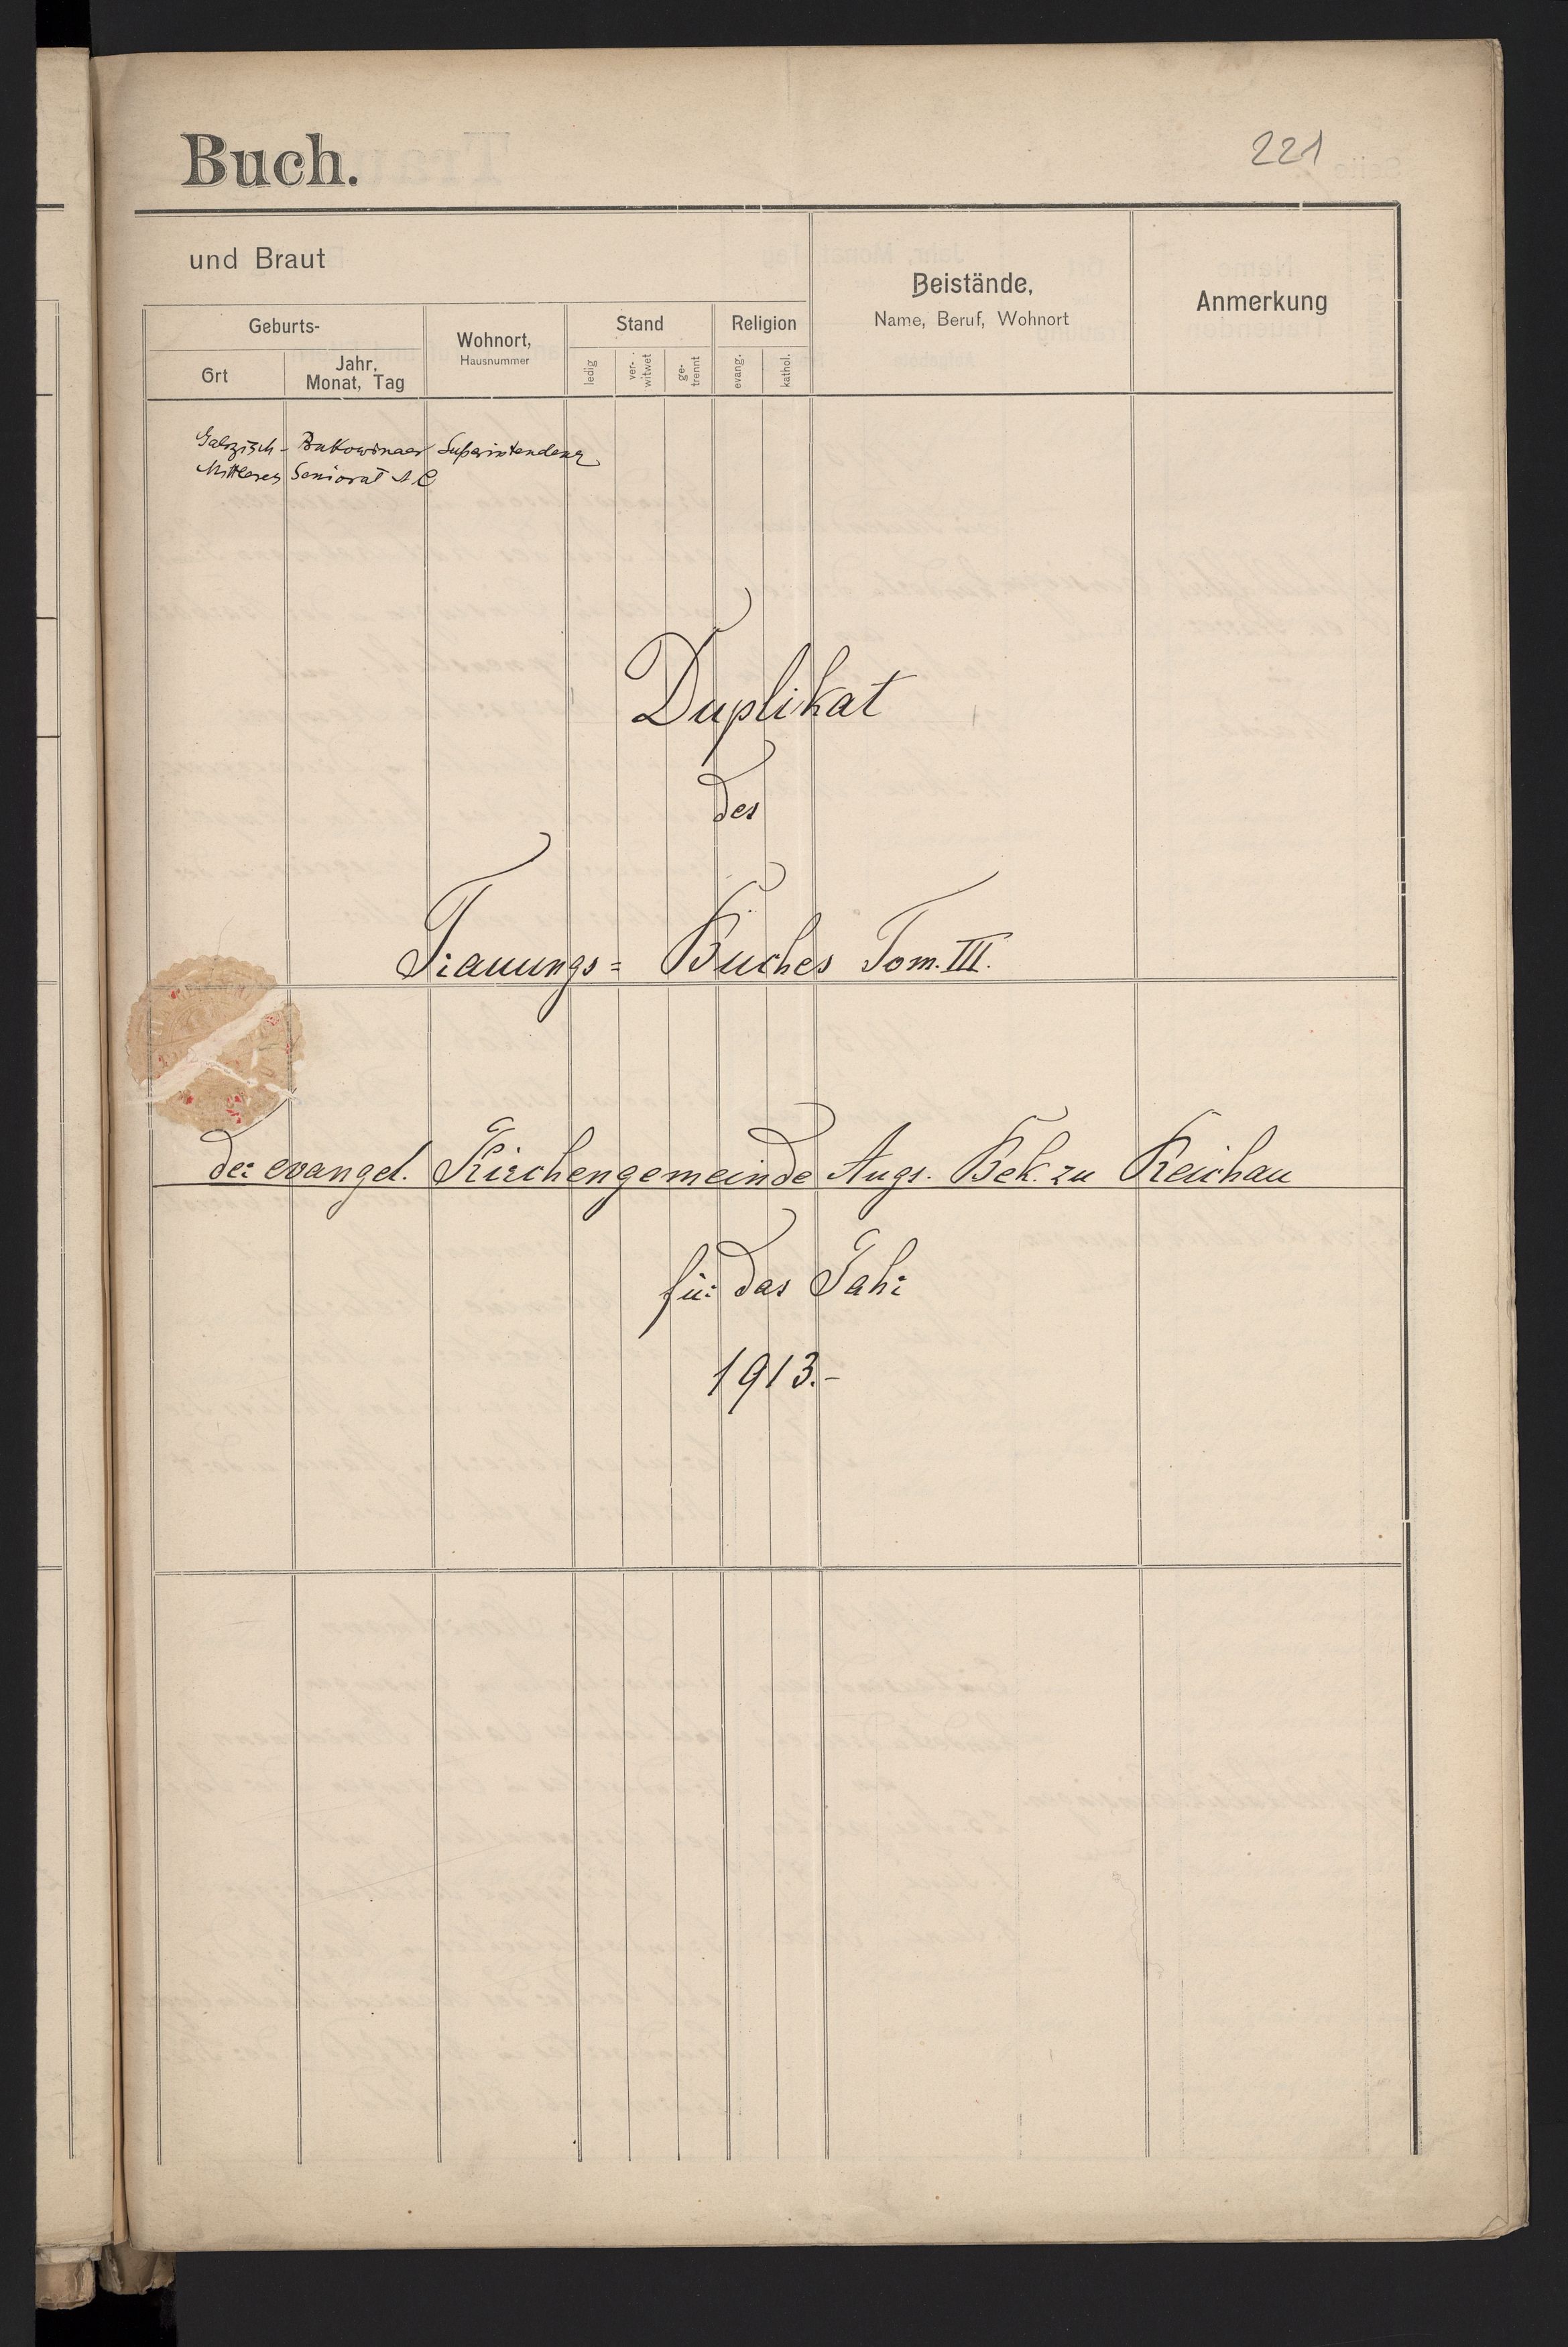 Buch.
221
und Braut
Beistände,
Name, Beruf, Wohnort
Anmerkung
Geburts-
Wohnort,
Hausnummer
Stand
Religion
Ort
Jahr,
Monat, Tag
ledig
ver-
witwet
ge-
trennt
evang.
kathol.
Galizisch-Bukowinaer Superintendenz
Mittleres Seniorat A C
Duplikat
des
Trauungs= Buches Tom. III.
der evangel. Kirchengemeinde Augs. Bek. zu Reichau
für das Jahr
1913.-